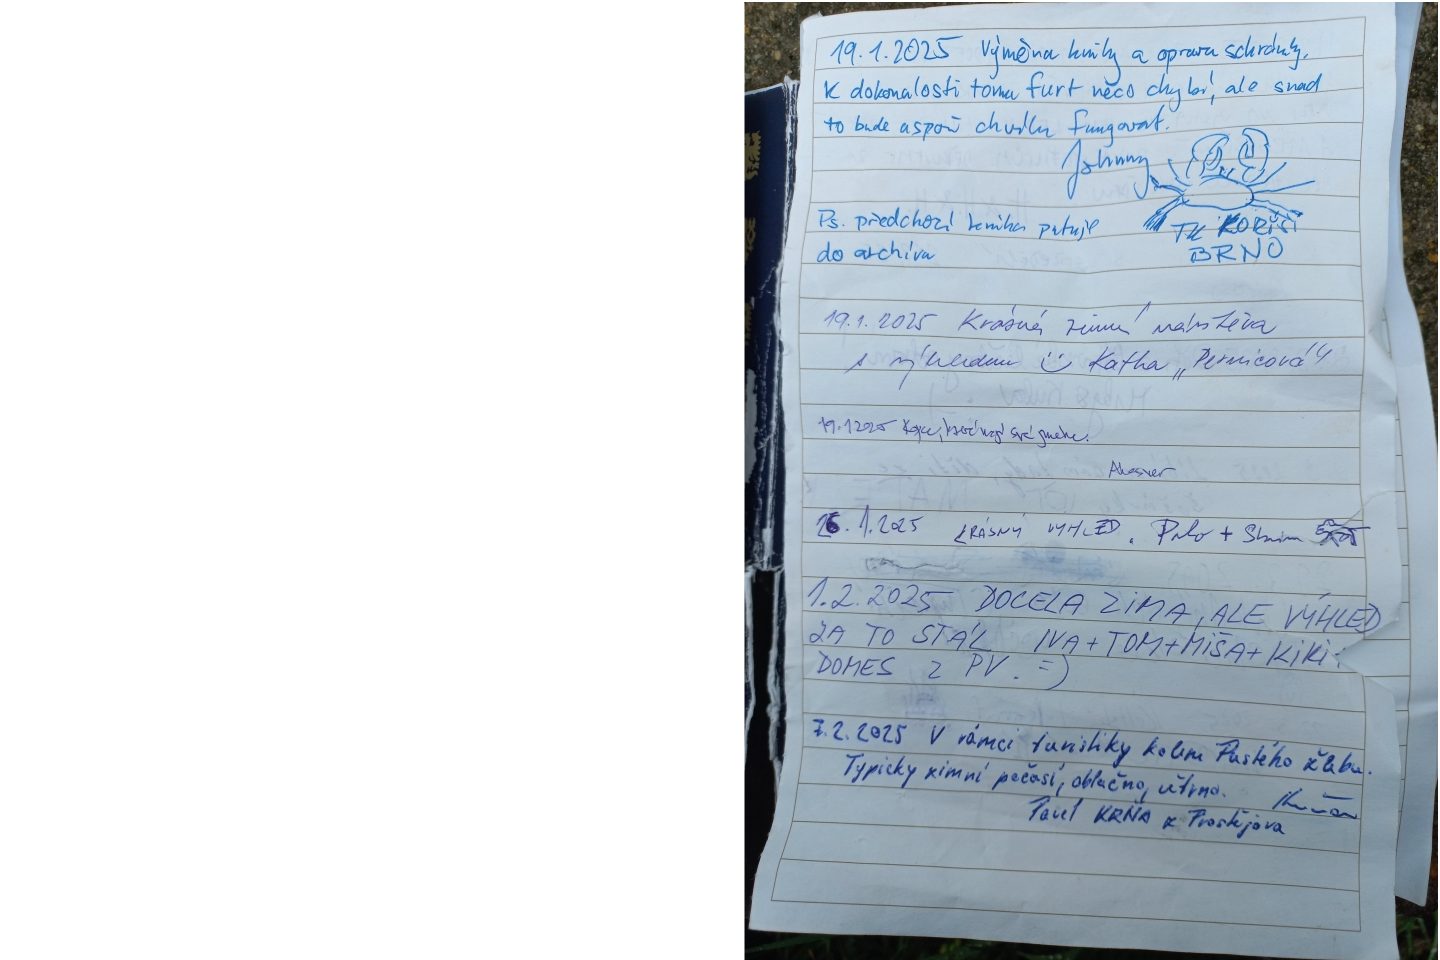 19.1.2025 Výměna knihy a oprava schránky.
K dokonalosti tomu furt něco chybí, ale snad
to bude aspoň chvilku fungovat.
Johnny
TK KORÝŠI
BRNO
Ps. předchozí kniha putuje
do archiva
19.1.2025 Krásná zimní návštěva
s výhledem Katha „Pernicová“
19.1.2025
Ahasver
26.1.2025 KRÁSNÝ VÝHLED.
1.2.2025 DOCELA ZIMA, ALE VÝHLED
ZA TO STÁL IVA+TOM+MIŠA+KIKI+
DOMES Z PV. =)
7.2.2025 V rámci turistiky kolem Pustého žlebu.
Typicky zimní počasí, oblačno, větrno.
Pavel KRŇA z Prostějova